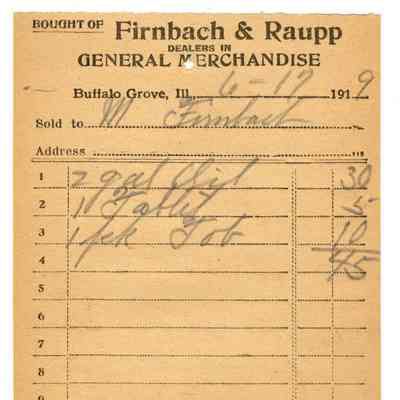 BOUGHT OF Firnbach & Raupp
DEALERS IN
GENERAL MERCHANDISE
Buffalo Grove, Ill. 6-17 1919
Sold to M Firnbach
Address
1 2 gal Oil 30
2 1 5
3 1 pk Tob 10
4 45
5
6
7
8
9